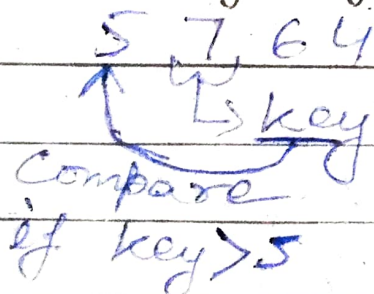 5 7, 6 4
key
Compare
if key > 5